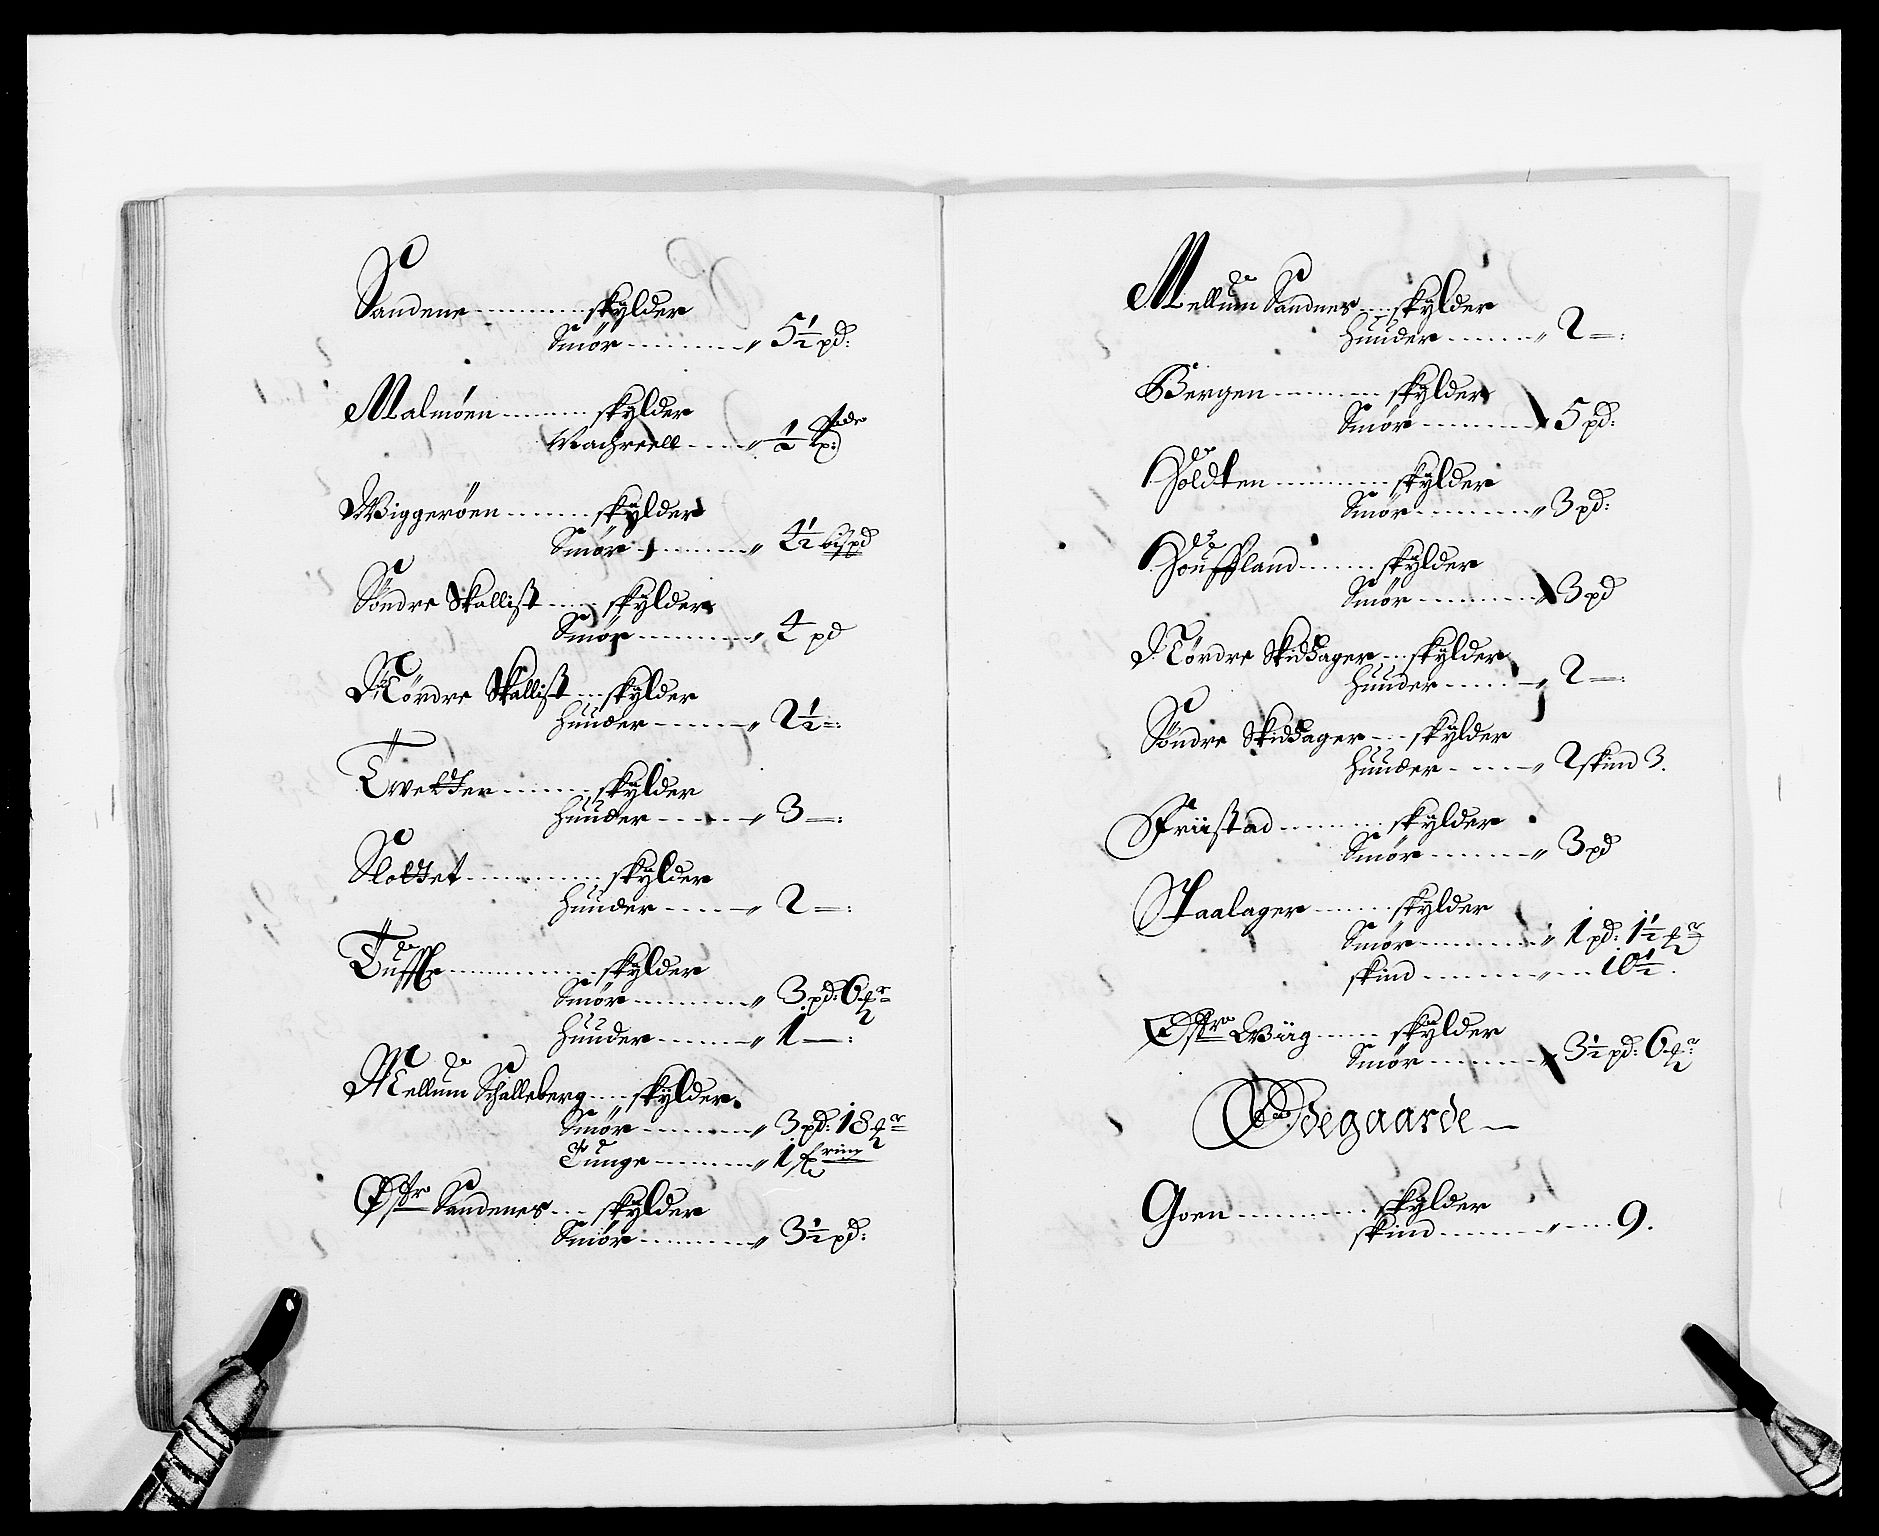 Sandene ............ skylder
Smør ............ 〃 5½ pd:
Malmøen ......... skylder
Machreell ...... 〃 ½
Wiggerøen ........ skylder
Smør ............ 〃 4½ bispd
Søndre Skallist ..... skylder
Smør ............ 〃 4 pd
Nørdre Skallist ... skylder
huuder ......... 〃 2½ —:
Twedter ......... skylder
huuder ......... 〃 3 —:
Slottet ............. skylder
huuder ....... 〃 2 —:
Tuffte ............... skylder
Smør ............ 〃 3 pd: 6
huuder ......... 〃 1 —:
Mellum Schalleberg .... skylder
Smør ............ 〃 3 pd: 18
Tunge .......... 〃 1
Østre Sandenes .... skylder
Smør ............ 〃 3½ pd:
Mellum Sandnes ... skylder
huuder ........ 〃 2 —:
Bergen .......... skylder
Smør ............ 〃 5 pd:
Holdten ........... skylder
Smør ............ 〃 3 pd:
Houffland ....... skylder
Smør ............ 〃 3 pd
Nørdre Skiddager ... skylder
huuder ...... 〃 2 —:
Søndre Skiddager ... skylder
huuder ...... 〃 2 skind 3.
Friistad .......... skylder
Smør ........... 〃 3 pd
Haalager ........ skylder
Smør ............ 〃 1 pd: 1½
skind ............ 〃 ... 10½.
Østre Wiig ...... skylder
Smør ........... 〃 3½ pd: 6
Ødegaarde —
Goen ............ skylder
skind .......... 〃 .... 9.